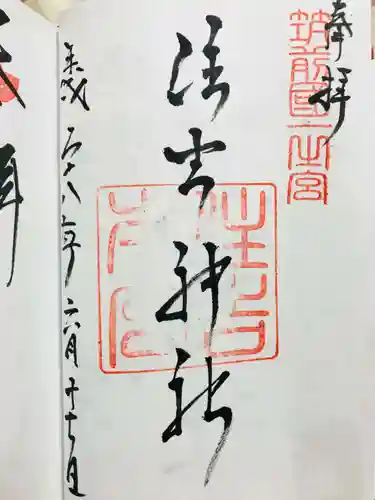 奉拝
筑前國一之宮
住吉神社
平成二十八年六月十七日